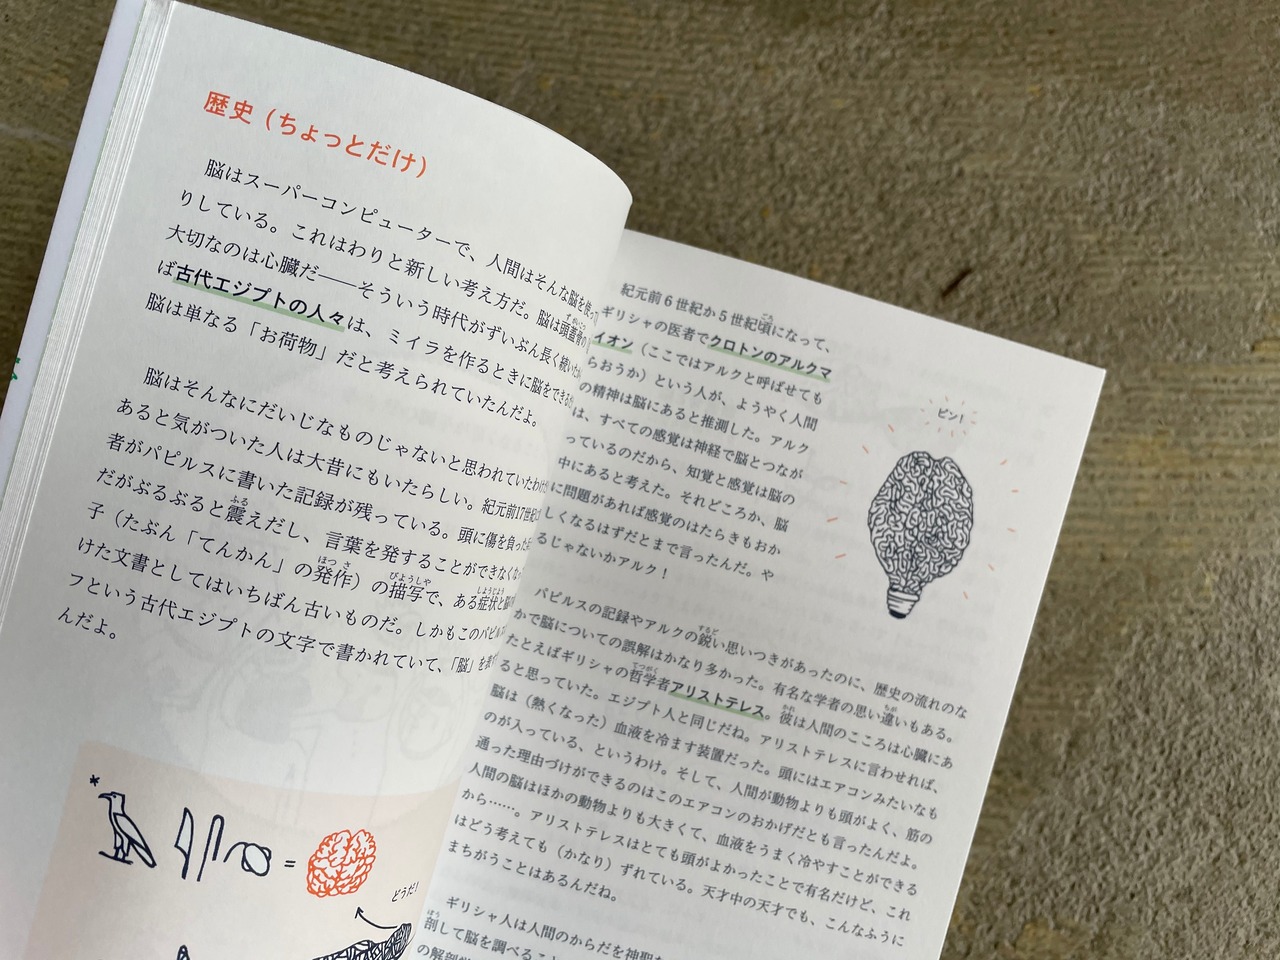 歴史（ちょっとだけ）
脳はスーパーコンピューターで、人間はそんな脳を使っ
りしている。これはわりと新しい考え方だ。脳は頭蓋骨の
大切なのは心臓だ――そういう時代がずいぶん長く続いた
ば古代エジプトの人々は、ミイラを作るときに脳をできる
脳は単なる「お荷物」だと考えられていたんだよ。
脳はそんなにだいじなものじゃないと思われていたわけ
あると気がついた人は大昔にもいたらしい。紀元前17世紀
者がパピルスに書いた記録が残っている。頭に傷を負った
だがぶるぶると震えだし、言葉を発することができなくな
子（たぶん「てんかん」の発作）の描写で、ある症状と
けた文書としてはいちばん古いものだ。しかもこのパピル
フという古代エジプトの文字で書かれていて、「脳」を
んだよ。
*
=
どうだ!
紀元前6世紀か5世紀頃になって、
ギリシャの医者でクロトンのアルクマ
イオン（ここではアルクと呼ばせても
らおうか）という人が、ようやく人間
の精神は脳にあると推測した。アルク
は、すべての感覚は神経で脳とつなが
っているのだから、知覚と感覚は脳の
中にあると考えた。それどころか、脳
に問題があれば感覚のはたらきもおか
しくなるはずだとまで言ったんだ。や
るじゃないかアルク！
ピン!
パピルスの記録やアルクの鋭い思いつきがあったのに、歴史の流れのな
かで脳についての誤解はかなり多かった。有名な学者の思い違いもある。
たとえばギリシャの哲学者アリストテレス。彼は人間のこころは心臓にあ
ると思っていた。エジプト人と同じだね。アリストテレスに言わせれば、
脳は（熱くなった）血液を冷ます装置だった。頭にはエアコンみたいなも
のが入っている、というわけ。そして、人間が動物よりも頭がよく、筋の
通った理由づけができるのはこのエアコンのおかげだとも言ったんだよ。
人間の脳はほかの動物よりも大きくて、血液をうまく冷やすことができる
から……。アリストテレスはとても頭がよかったことで有名だけど、これ
はどう考えても（かなり）ずれている。天才中の天才でも、こんなふうに
まちがうことはあるんだね。
ギリシャ人は人間のからだを神聖な
剖して脳を調べること
の解剖学